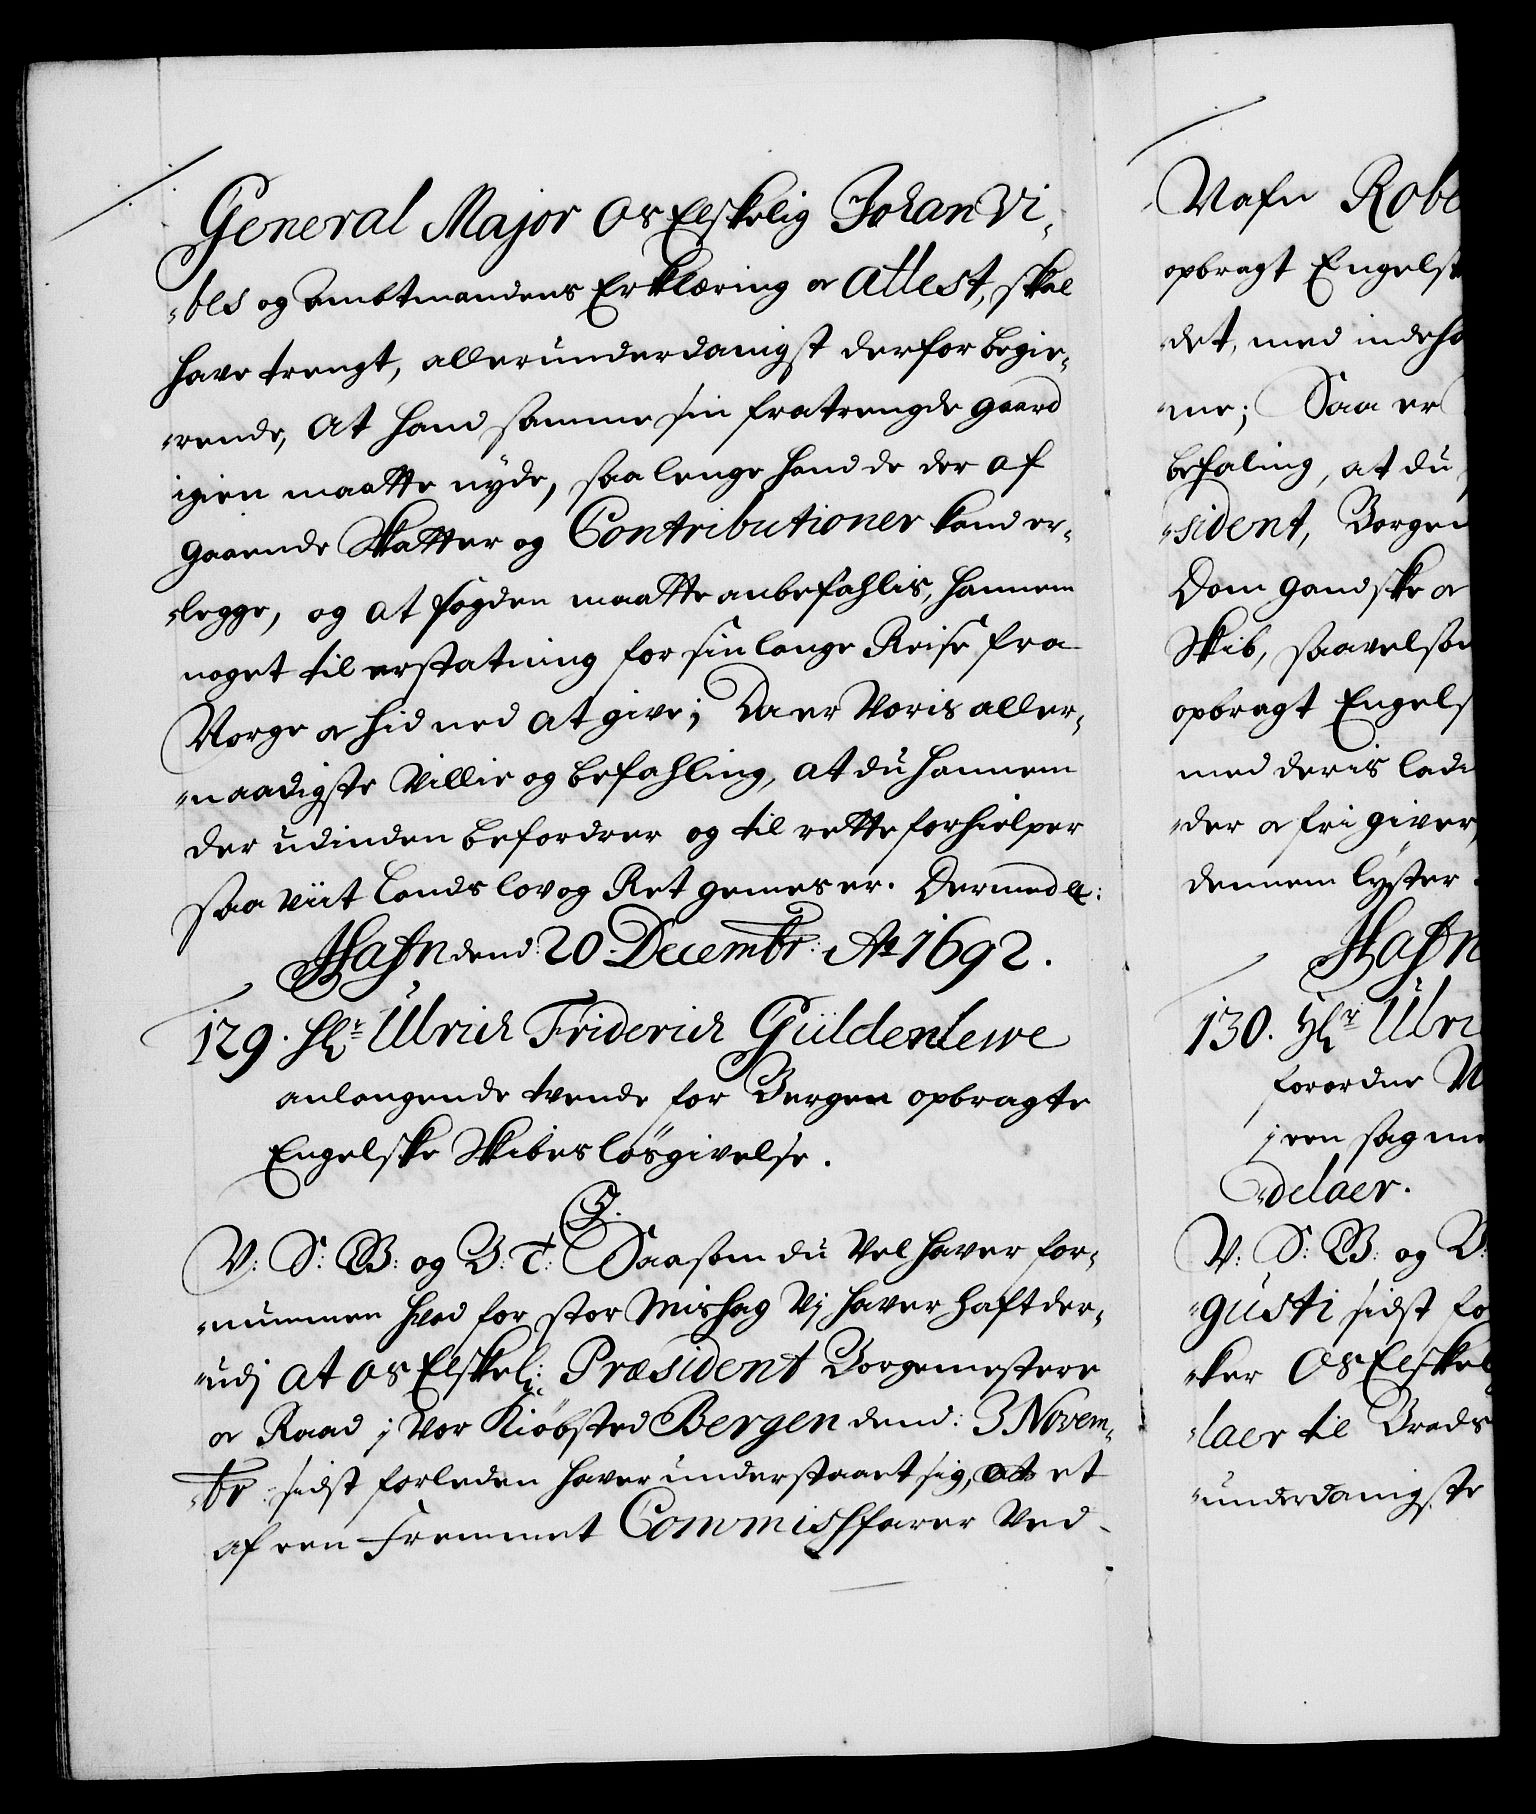 General Major Os Elskelig Johan Vi-
-bes og ambtmandens Erklæring oc attest, skal
have trengt, allerunderdanigst derfor begie-
-rende, At hand samme sin fratrengde gaard
igien maatte nyde, saa lenge hand de der af
gaaende Skatter og Contributioner kand er-
-legge, og at fogden maatte anbefahlis, hannem
noget til erstatning for sin lange Reise fra
Norge oc hid ned at give; Da er Voris aller-
-naadigste Villie og befahling, at du hannem
der udinden befordrer og til rette forhielper
saa viit Lands lov og Ret gemes er. Dermed etc:
Hafn dend: 20. Decembr: Ao 1692.
129. Hr Ulrich Friderich Güldenlewe
anlangende tvende for Bergen opbragte
Engelske Skibes løsgivelse.
C 5.
V: S: G: B: og B: T: Saasom du vel haver for-
-nummen hvad for stor Mishag Vj haver haft der-
-udj at os Elskel: Præsident Borgemestere
oc Raad j Vor Kiøbsted Bergen dend: 3 Novem-
-br: sidst forleden haver understaaet sig, at et
af een Fremmet Commissfarer Ved-
Nafn Robe
opbragt Engelsk
det, med indeho
-me; Saa er
befaling, at du
-sident, Borgem
Dom gandske oc
Skib, saavelsom
opbragt Engels
med deris ladn
-der oc fri giver,
dennem lyster.
Hafn
130. Hr Ulri
forordne
j een sag me
-delaer.
V: S: G: B: og B:
-gusti sidst fo
-ker Os Elskel
-laer til Brads
-underdanigste